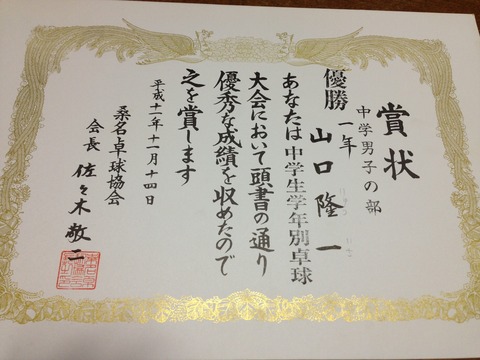 賞状
中学男子の部
優勝 一年 山口隆一
あなたは中学生学年別卓球
大会において頭書の通り
優秀な成績を収めたので
之を賞します
平成十一年十一月十四日
桑名卓球協会
会長 佐々木敬二